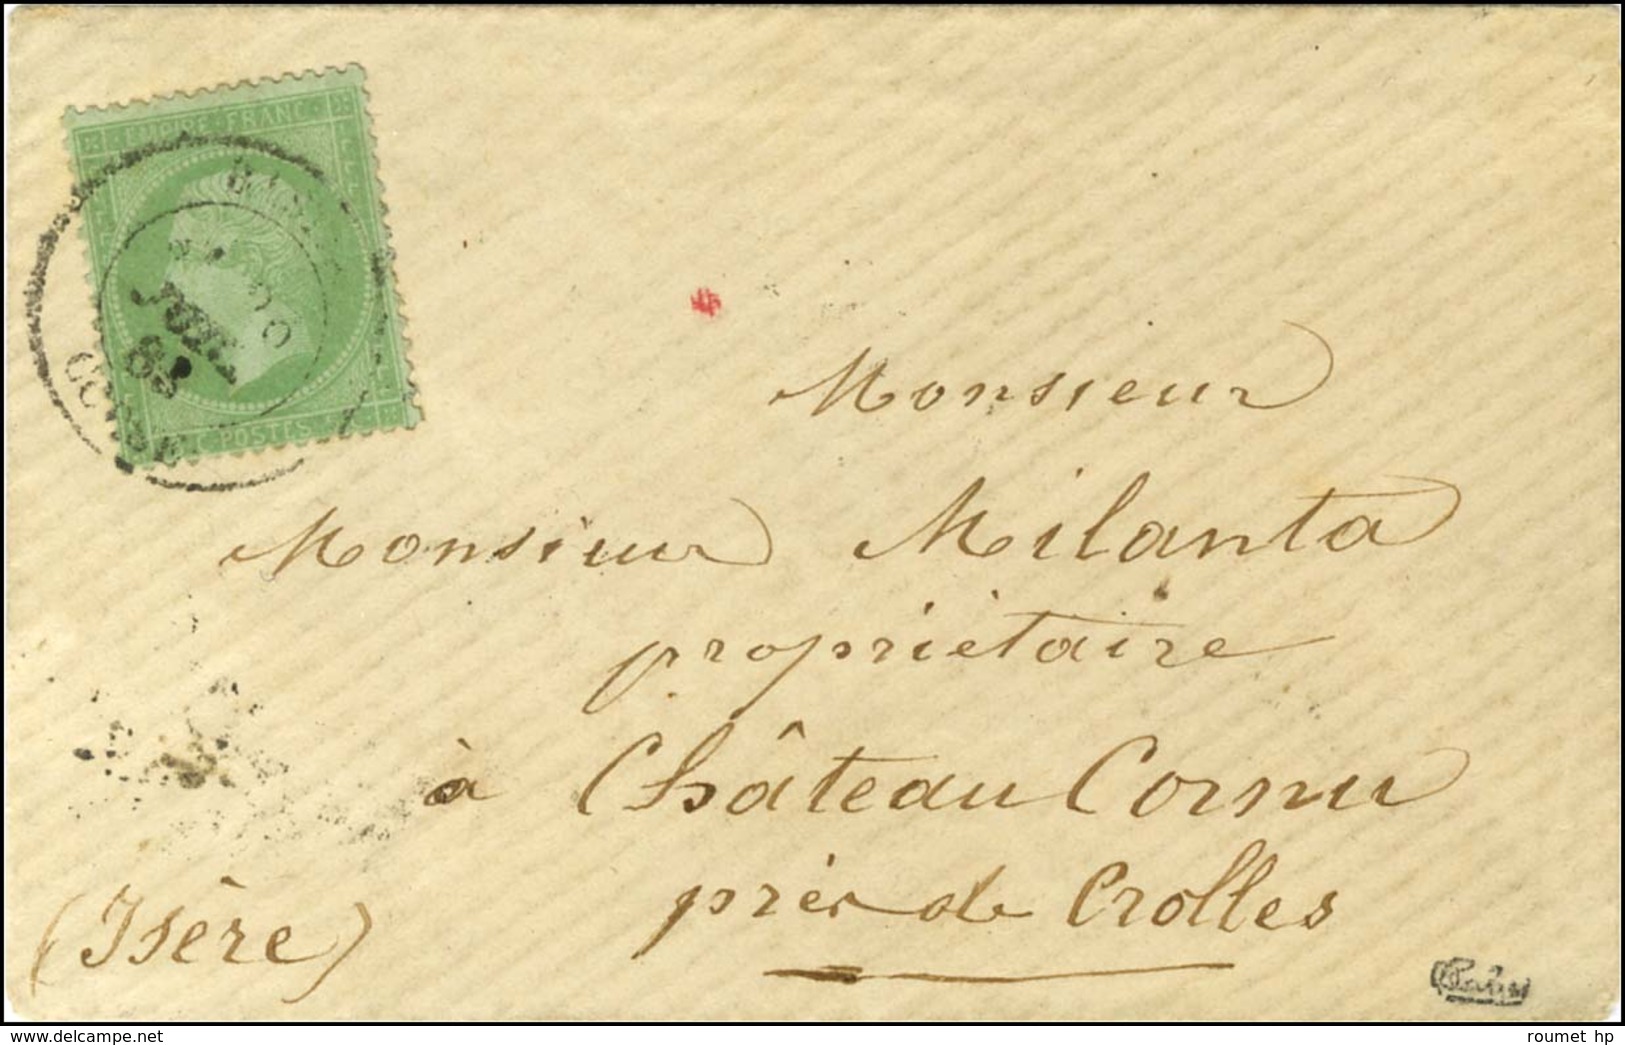 EMPIRE FRANC
BASTIA
JUIL.
63
CORSE
C. POSTES
Monsieur
Monsieur Milanta
propriétaire
à Château Cornu
près de Crolles
(Isère)
www.delcampe.net
roumet hp